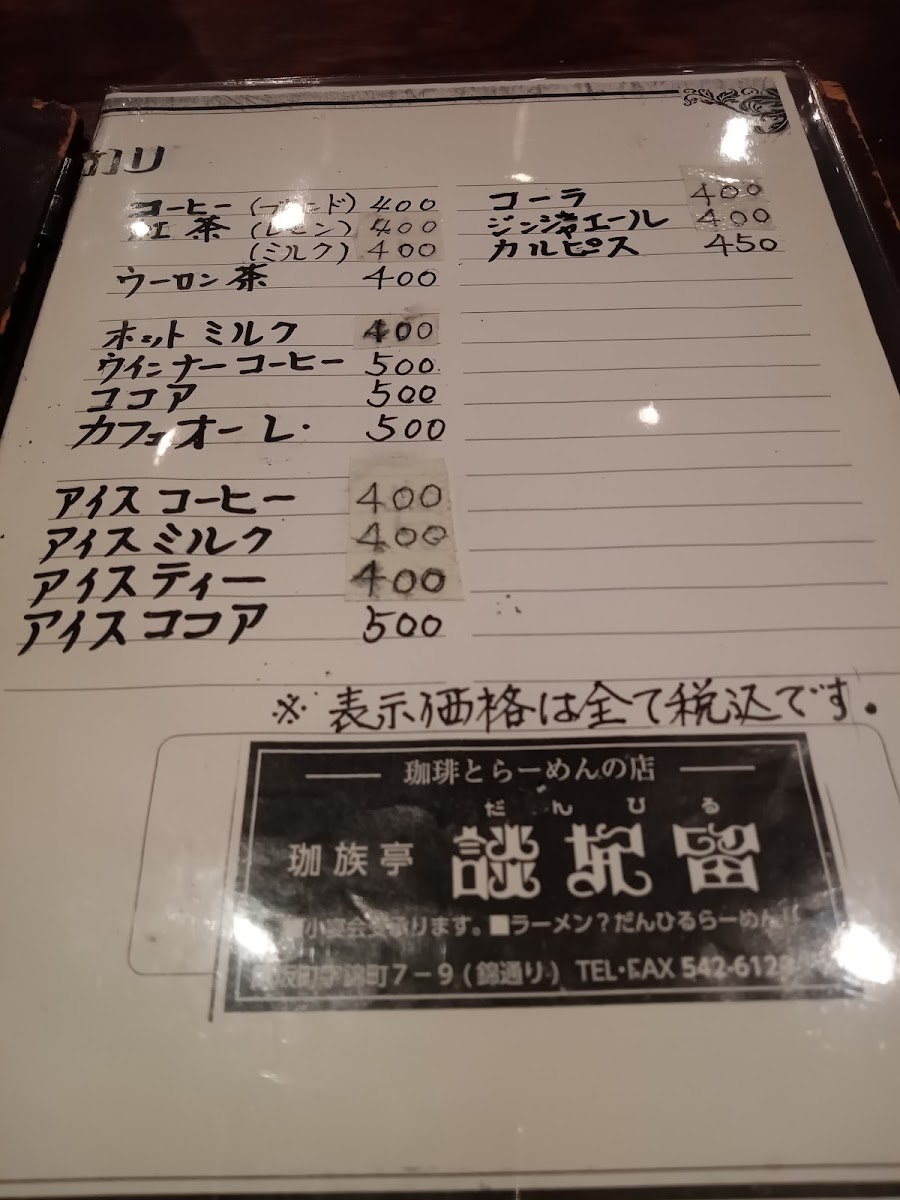 nu
コーヒー (ブレンド) 400
紅茶 (レモン) 400
(ミルク) 400
ウーロン茶 400
ホットミルク 400
ウインナーコーヒー 500
ココア 500
カフェオーレ 500
アイスコーヒー 400
アイスミルク 400
アイスティー 400
アイスココア 500
コーラ 400
ジンジャエール 400
カルピス 450
※表示価格は全て税込です.
珈琲とらーめんの店
だんひる
珈族亭 談妃留
■小宴会承ります。■ラーメン?だんひるらーめん!
坂町字錦町7-9(錦通り) TEL・FAX 542-612